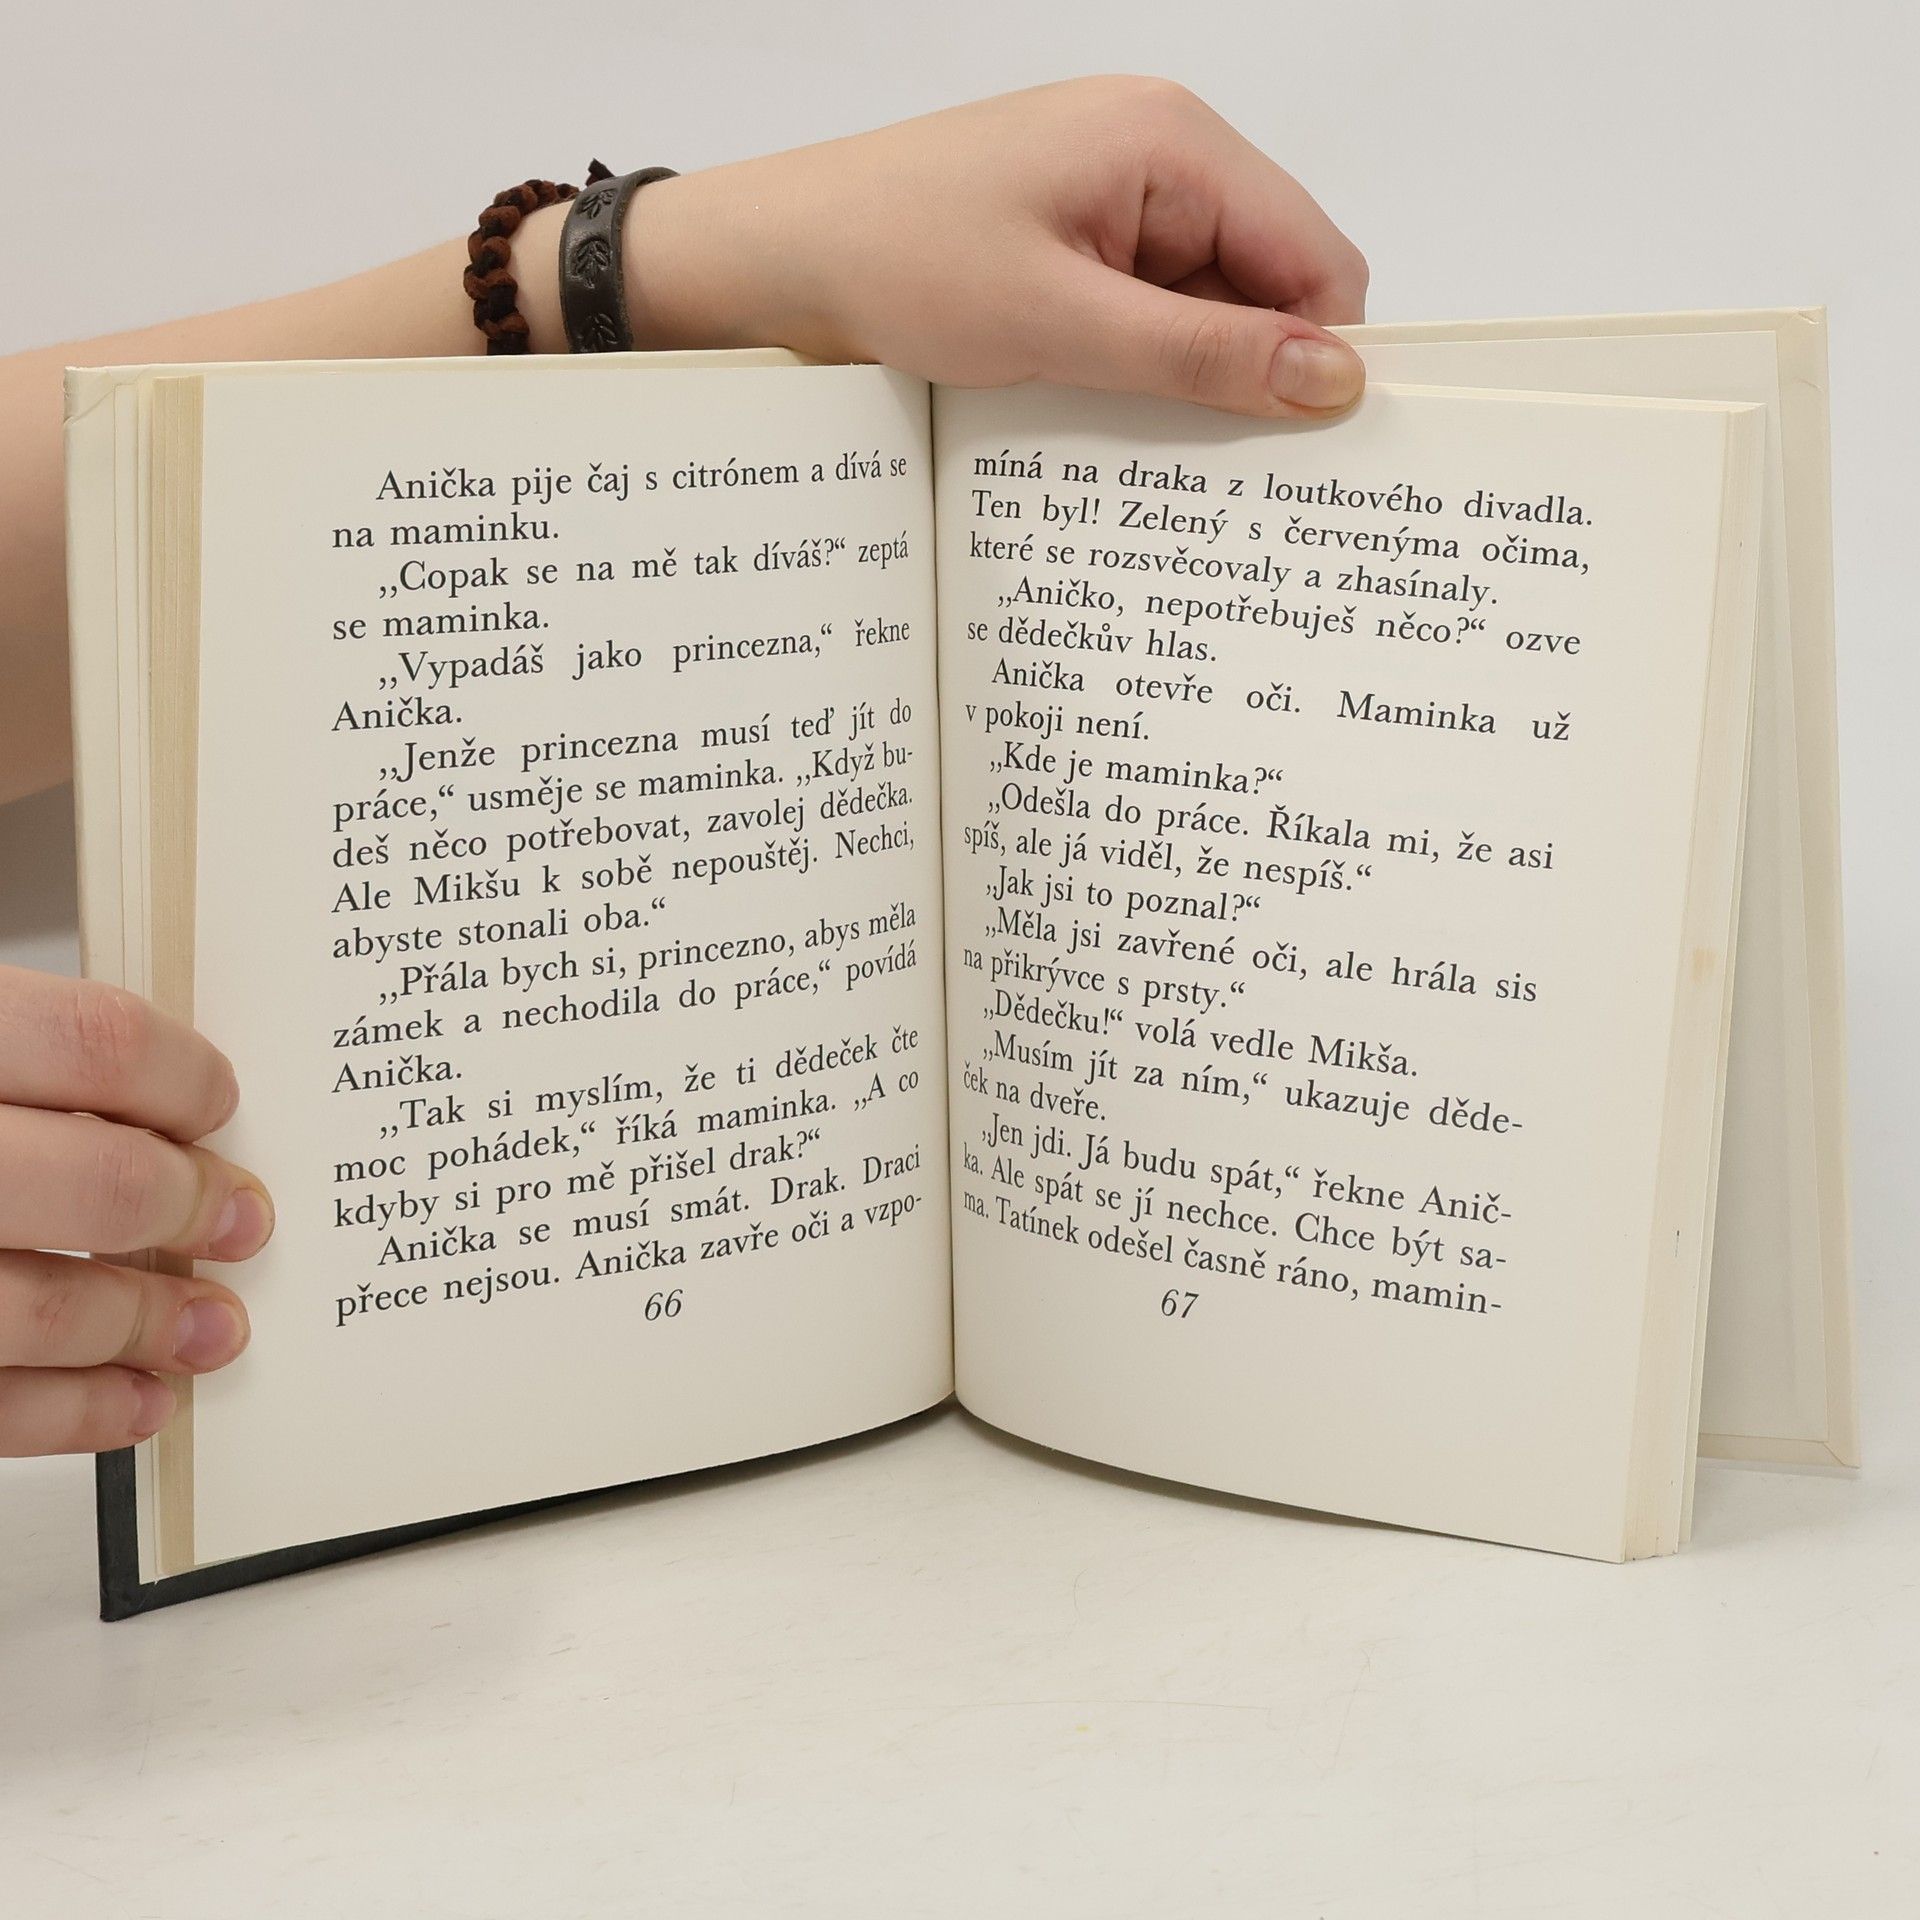 Anička pije čaj s citrónem a dívá se
na maminku.
,,Copak se na mě tak díváš?“ zeptá
se maminka.
,,Vypadáš jako princezna,“ řekne
Anička.
,,Jenže princezna musí teď jít do
práce,“ usměje se maminka. ,,Když bu-
deš něco potřebovat, zavolej dědečka.
Ale Mikšu k sobě nepouštěj. Nechci,
abyste stonali oba.“
,,Přála bych si, princezno, abys měla
zámek a nechodila do práce,“ povídá
Anička.
,,Tak si myslím, že ti dědeček čte
moc pohádek,“ říká maminka. ,,A co
kdyby si pro mě přišel drak?“
Anička se musí smát. Drak. Draci
přece nejsou. Anička zavře oči a vzpo-
66
míná na draka z loutkového divadla.
Ten byl! Zelený s červenýma očima,
které se rozsvěcovaly a zhasínaly.
„Aničko, nepotřebuješ něco?“ ozve
se dědečkův hlas.
Anička otevře oči. Maminka už
v pokoji není.
„Kde je maminka?“
„Odešla do práce. Říkala mi, že asi
spíš, ale já viděl, že nespíš.“
„Jak jsi to poznal?“
„Měla jsi zavřené oči, ale hrála sis
na přikrývce s prsty.“
„Dědečku!“ volá vedle Mikša.
„Musím jít za ním,“ ukazuje děde-
ček na dveře.
„Jen jdi. Já budu spát,“ řekne Anič-
ka. Ale spát se jí nechce. Chce být sa-
ma. Tatínek odešel časně ráno, mamin-
67